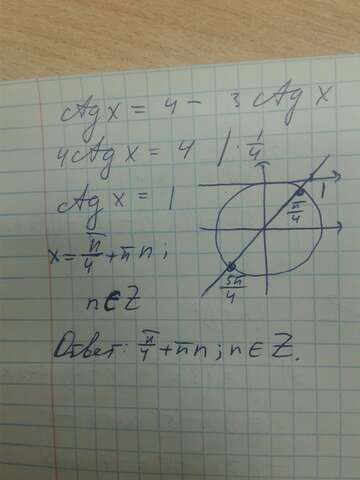 ctg x = 4 - 3 ctg x
4ctg x = 4 | · 1/4
ctg x = 1
1
π/4
x = π/4 + πn;
5π/4
n ∈ Z
Ответ: π/4 + πn; n ∈ Z.